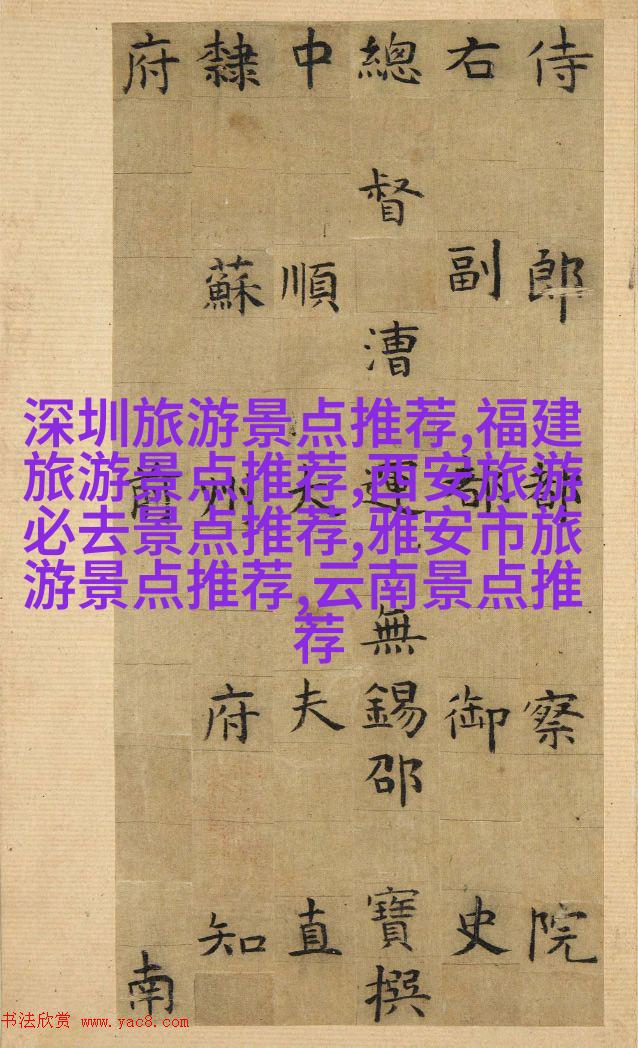 侍郎都察院
右副都御史
總督漕運無錫邵寶撰
中順大夫直
隸蘇州府知
府前南
深圳旅游景点推荐,福建
旅游景点推荐,西安旅游
必去景点推荐,雅安市旅
游景点推荐,云南景点推
荐
书法欣赏 www.yac8.com